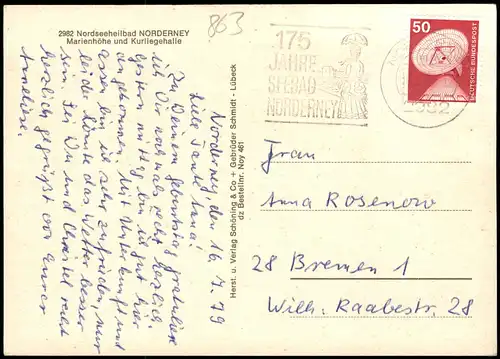 2982 Nordseeheilbad NORDERNEY
Marienhöhe und Kurliegehalle
863
175
JAHRE
SEEBAD
NORDERNEY
2982
50
DEUTSCHE BUNDESPOST
Norderney, den 16.7.79
Liebe Tante Anna!
Zu Deinem Geburtstag gratuliere
ich Dir nochmals recht herzlich.
Gestern mittag bin ich gut hier
angekommen. Mit Unterkunft und
Essen bin ich sehr zufrieden, nur
leider könnte das Wetter besser
sein. Sei Du und Christel recht
herzlich gegrüßt von Eurer
Anneliese.
Herst. u. Verlag Schöning & Co + Gebrüder Schmidt - Lübeck
dz Bestellnr. Noy 461
Frau
Anna Rosenow
28 Bremen 1
Wilh.-Raabestr. 28